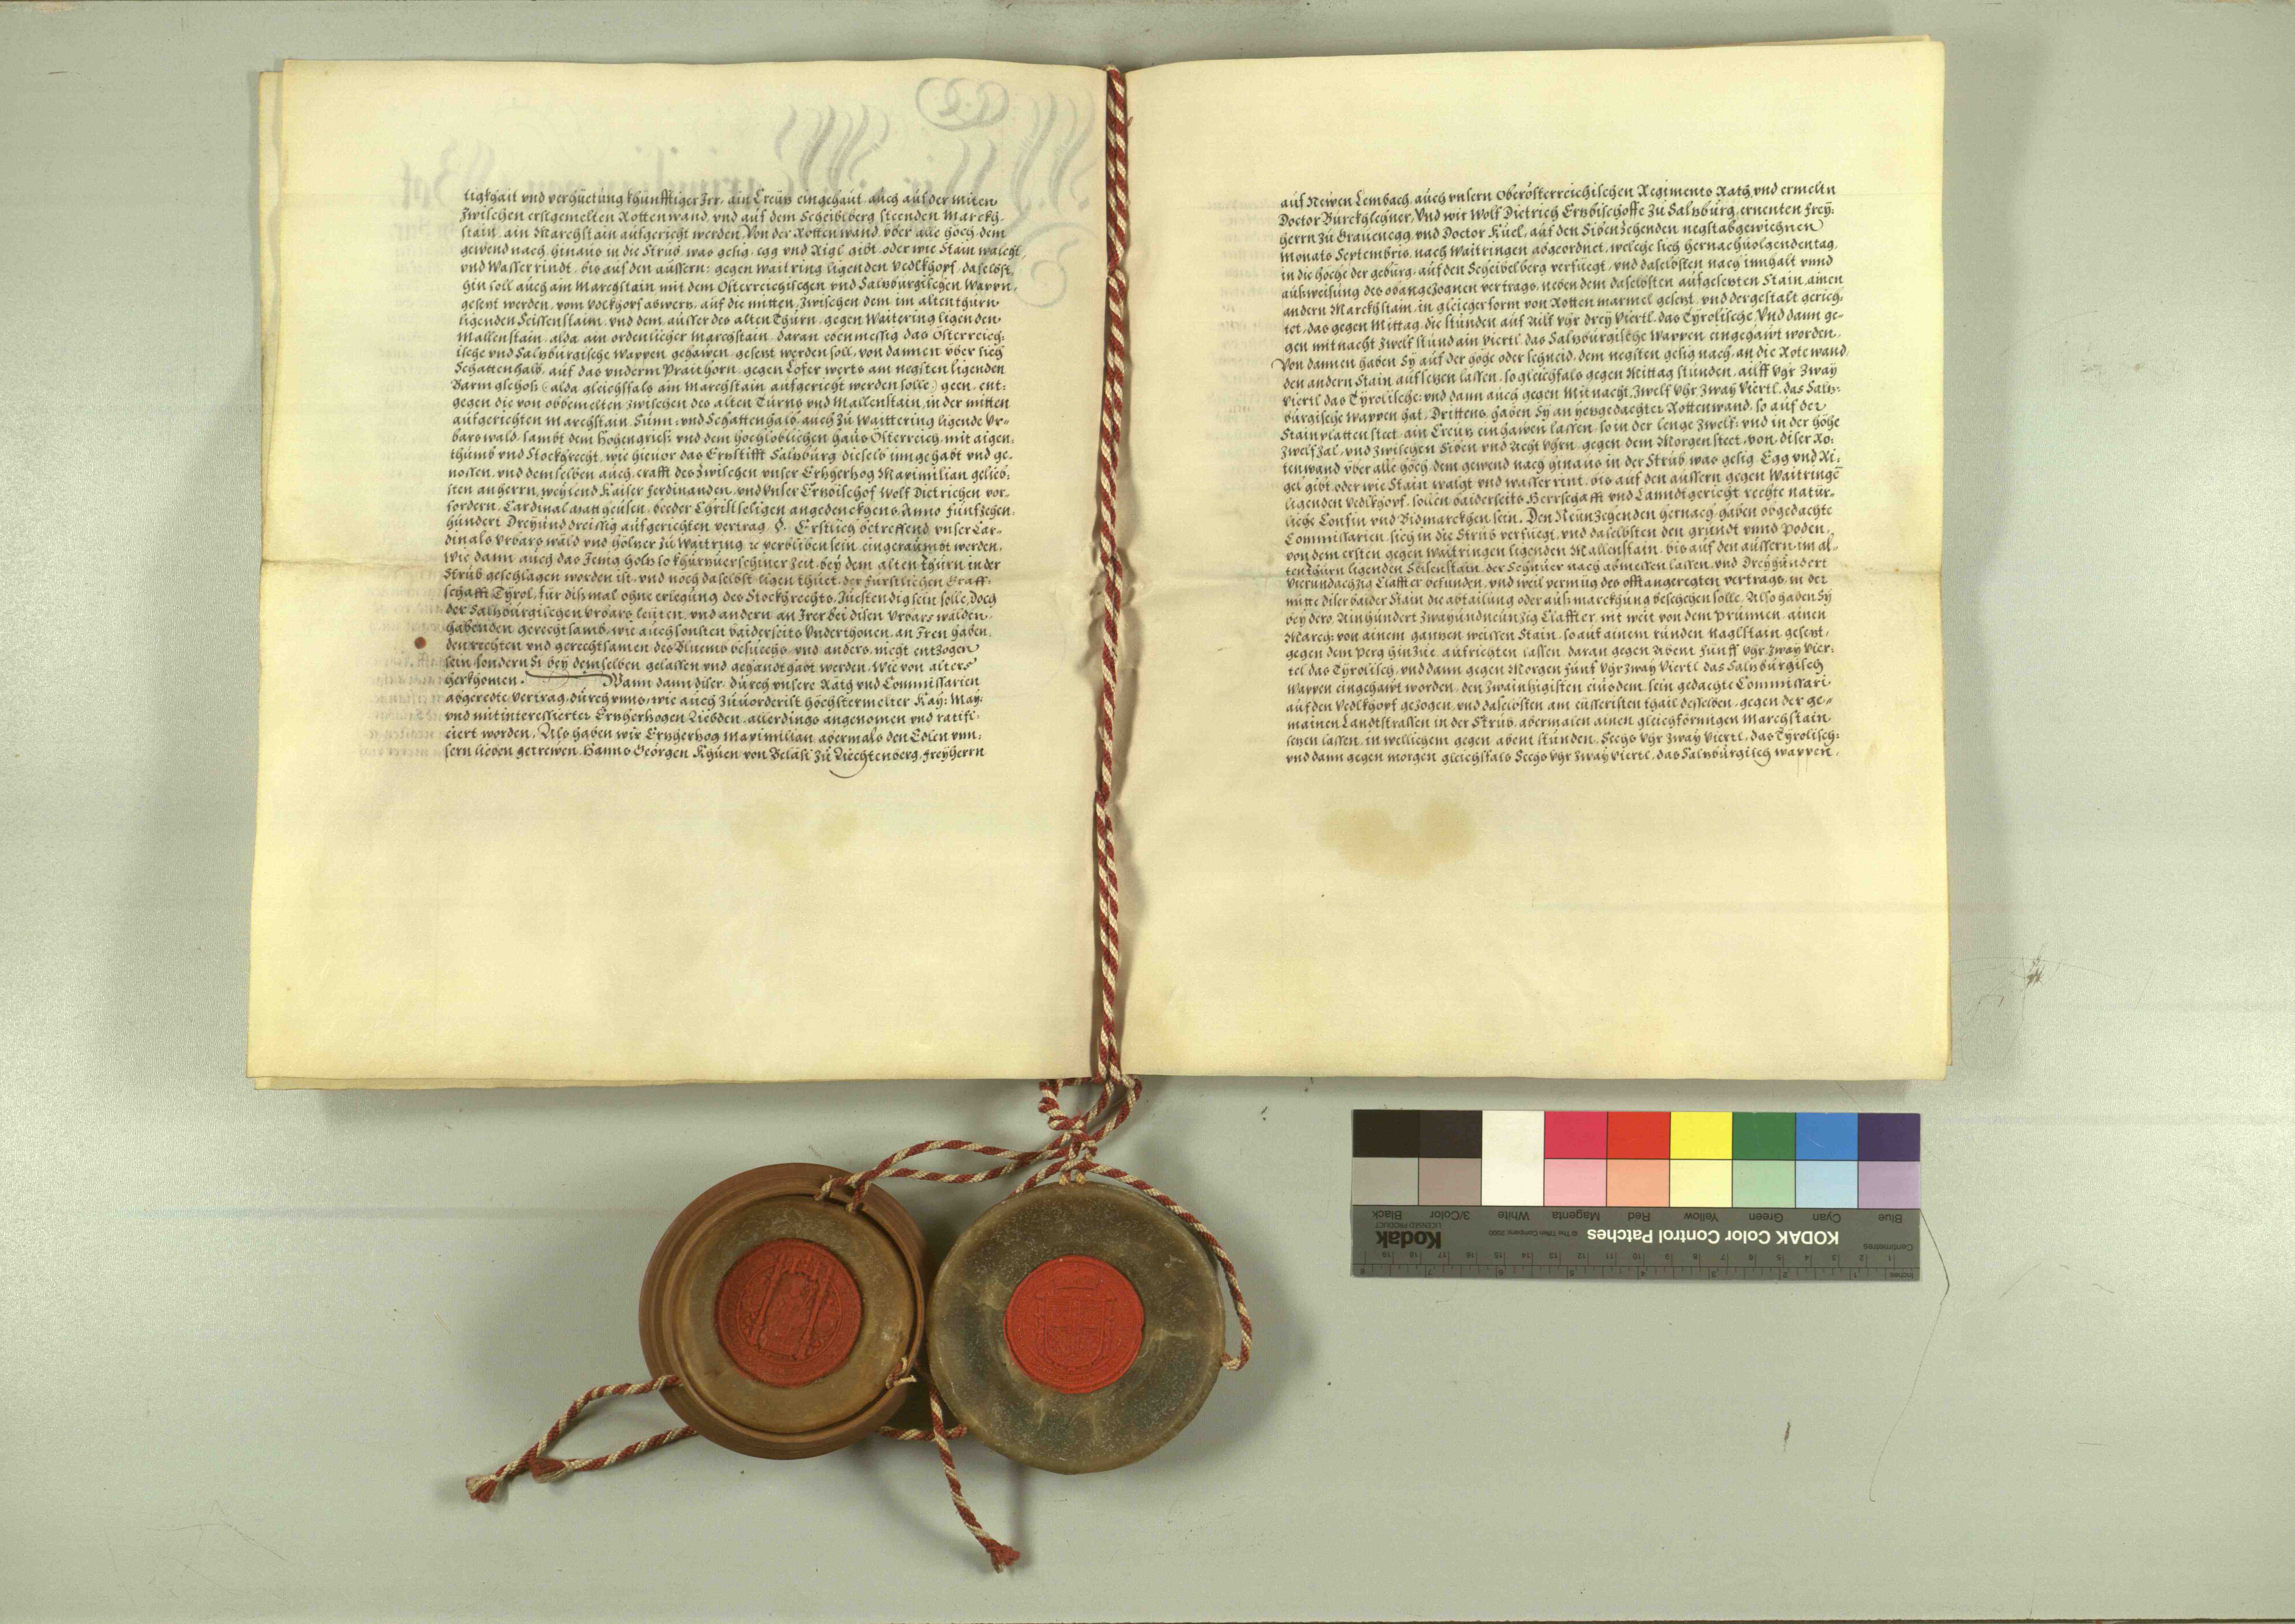 tigkhait vnd verhüetung khünfftiger Irr, ain Creüz eingehaut, auch auf der miten
zwischen erstgemelten Rottenwand, vnd auf dem Scheiblberg steenden Marckh-
stain, ain Marchstain aufgericht werden Von der Rottenwand, vber alle hoch dem
gewend nach, hinaus in die Strub, was gehig, egg vnd Rigl gibt, oder wie Stain walcht,
vnd Wasser rindt, bis auf den aüssern: gegen waitring ligenden Vedlkhopf, daselbst,
hin soll auch am Marchstain mit dem Osterreichischen vnd Salzburgischen Wappn,
gesezt werden, vom Volkhopf abwerz, auf die mitten, zwischen dem im alten thürn
ligenden Seissenstaim, vnd dem aüsser des alten Thürn, gegen Waitering ligenden
Mallenstain, alda ain ordenlicher Marchstain, daran ebenmessig das Österreich:
ische vnd Salzburgische Wappen gehawen, gesezt werden soll, von dannen vber sich
Schattenhalb, auf das vnderm Praithorn, gegen Lofer werts am negsten ligenden
Barmglehoß (alda gleichfals ain Marchstain aufgericht werden solle) geen, ent:
gegen die von obbemelten zwischen des alten Türns vnd Mallenstain, in der mitten
aufgerichten Marchstain, Sünn: vnd Schattenhalb, auch zu Waittering ligende Vr-
bars wald, sambt dem hohengrieß, vnd dem hochloblichen haüs Österreich, mit aigen:
thümb vnd Stockhrecht, wie hieuor das Erzstifft Salzbürg dieselb inngehabt vnd ge-
nossen, vnd demselben auch, crafft des zwischen vnser Erzherhog Maximilian gelieb:
sten anherrn, weylend Kaiser Ferdinanden, vnd vnser Erzbischof Wolf Dietrichen vor-
fordern, Cardinal Mattheüsen, beeder Christseligen angedenckhens, Anno Fünfzehen:
hündert Dreyünd dreissig aufgerichten vertrag, §. Erstlich betreffend vnser Car-
dinals vrbars wäld vnd hölzer zu Waitring ꝛc verbliben sein, eingeraumbt werden,
Wie dann auch das Jenig holz so khürzuerschiner zeit, bey dem alten thürn in der
Strüb geschlagen worden ist, vnd noch daselbst ligen thüet, der Fürstlichen Graff:
schafft Tyrol, für dißmal ohne erlegung des Stockhrechts, züestendig sein solle, Doch
der Salzbürgischen Vrbars leüten, vnd andern, an Irer bei disen Vrbars wälden,
habenden gerechtsamb, wie auch sonsten baiderseits Vnderthonen, an Iren haben,
den rechten vnd gerechtsamen des Bluembesüechs, vnd anders, nicht entzogen
sein, sondern Si bey demselben gelassen vnd gehandthabt werden, wie von alters
herkhomen. Wann dann diser, dürch vnsere Räth vnd Commissarien
abgeredte Vertrag, dürch vnns, wie auch züuorderist höchstermelter Kay: May:
vnd mitinteressierter Erzherhogen Liebden, allerdings angenomen vnd ratifi-
ciert worden, Als haben wir Erzherhog Maximilian abermals den Edlen vnn-
sern lieben getrewen, Hanns Georgen Khüen von Belasi zu Liechtenberg, Freyherrn
auf Newen Lembach, auch vnsern Oberösterreichischen Regiments Rath, vnd ermeltn
Doctor Bürckhlehner, Vnd wir Wolf Dietrich Erzbischoffe zu Salzbürg, ernenten Frey:
herrn zu Grauenegg, vnd Doctor Küel, auf den Sibenzehenden negstabgewichnen
Monats Septembris, nach Waitringen abgeordnet, welche sich hernachuolgenden tag,
in die höche der gebürg, auf den Scheibelberg verfüegt, vnd daselbsten nach innhalt vnnd
aüßweisung des obangezognen vertrags, neben dem daselbsten aufgesezten Stain, ainen
andern Marckhstain, in gleicher form von Rotten marmel gesezt, vnd dergestalt gerich-
tet, das gegen Mittag die stünden auf Ailf Vhr drey Viertl, das Tyrolische, Vnd dann ge-
gen mitnacht zwelf stünd ain Viertl, das Salzbürgische Wappen eingehawt worden,
Von dannen haben Sy auf der hohe oder schneid, dem negsten gehig nach, an die Rotewand,
den andern Stain aufsezen lassen, so gleichfals gegen Mittag stünden, ailff Vhr zway
Viertl das Tyrolische: vnd dann auch gegen Mitnacht, zwelf Vhr, zway Viertl, das Salz-
bürgische Wappen hat, Drittens, haben Sy an yezgedachter Rottenwand, so auf der
Stainplatten steet, ain Creüz einhawen lassen, so in der lenge Zwelf: vnd in der höhe
zwelf Zäl, vnd zwischen Siben vnd Acht Vhrn, gegen dem Morgen steet, von diser Ro:
tenwand vber alle höch, dem gewend nach hinaus in der Strüb, was gehig, Egg vnd Ri:
gel gibt, oder wie Stain walgt vnd wasser rint, bis auf den aüssern gegen Waitringē
ligenden Vedlkhopf, sollen baiderseits Herrschafft vnd Lanndtgericht rechte natür-
liche Confin vnd Bidmarckhen sein. Den Neünzehenden hernach haben obgedachte
Commissarien, sich in die Strüb verfuegt, vnd daselbsten den gründt vnnd Poden,
von dem ersten gegen Waitringen ligenden Mallenstain, bis auf den aüssern, im al-
tenthürn ligenden Seisenstain, der Schnüer nach abmessen lassen, vnd Dreyhündert
Vierundachzig Claffter befunden, vnd weil vermüg des offtangeregten vertrags, in der
mitte diser baider Stain die abtailung oder aüßmarckhüng beschehen solle, Also haben Sy
bey dero, Ainhündert zwayündneünzig Claffter, nit weit von dem Prünnen, ainen
March: von ainem ganzen weissen Stain, so auf ainem ründen Naglstain gesezt,
gegen dem Perg hinzüe, aufrichten lassen, daran gegen Abent Fünff Vhr, zway Vier-
tel das Tyrolisch, vnd dann gegen Morgen fünf Vhr zway Viertl das Salzbürgisch
Wappen eingehawt worden, den zwainzigisten eiusdem, sein gedachte Commissari
auf den Vedlkhopf gezogen, vnd daselbsten am eüsseristen thail desselben, gegen der ge-
mainen Landtstrassen in der Strüb, abermalen ainen gleichförmigen Marchstain
sezen lassen, in wellichem gegen abent stünden, Sechs Vhr zway Viertl, das Tyrolisch:
vnd dann gegen morgen gleichfals Sechs Vhr zway Viertl, das Salzbürgisch wappen,
Blue Cyan Green Yellow Red Magenta White 3/Color Black
KODAK Color Control Patches © The Tiffen Company, 2000 Kodak LICENSED PRODUCT
Centimetres
Inches